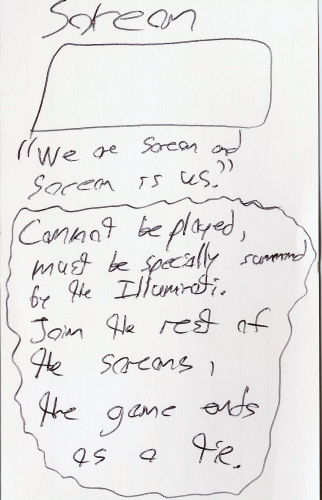 Sorean
"We are Sorean and
Sorean is us."
Cannot be played,
must be specially summond
by the Illuminati.
Join the rest of
the soreans,
the game ends
as a tie.